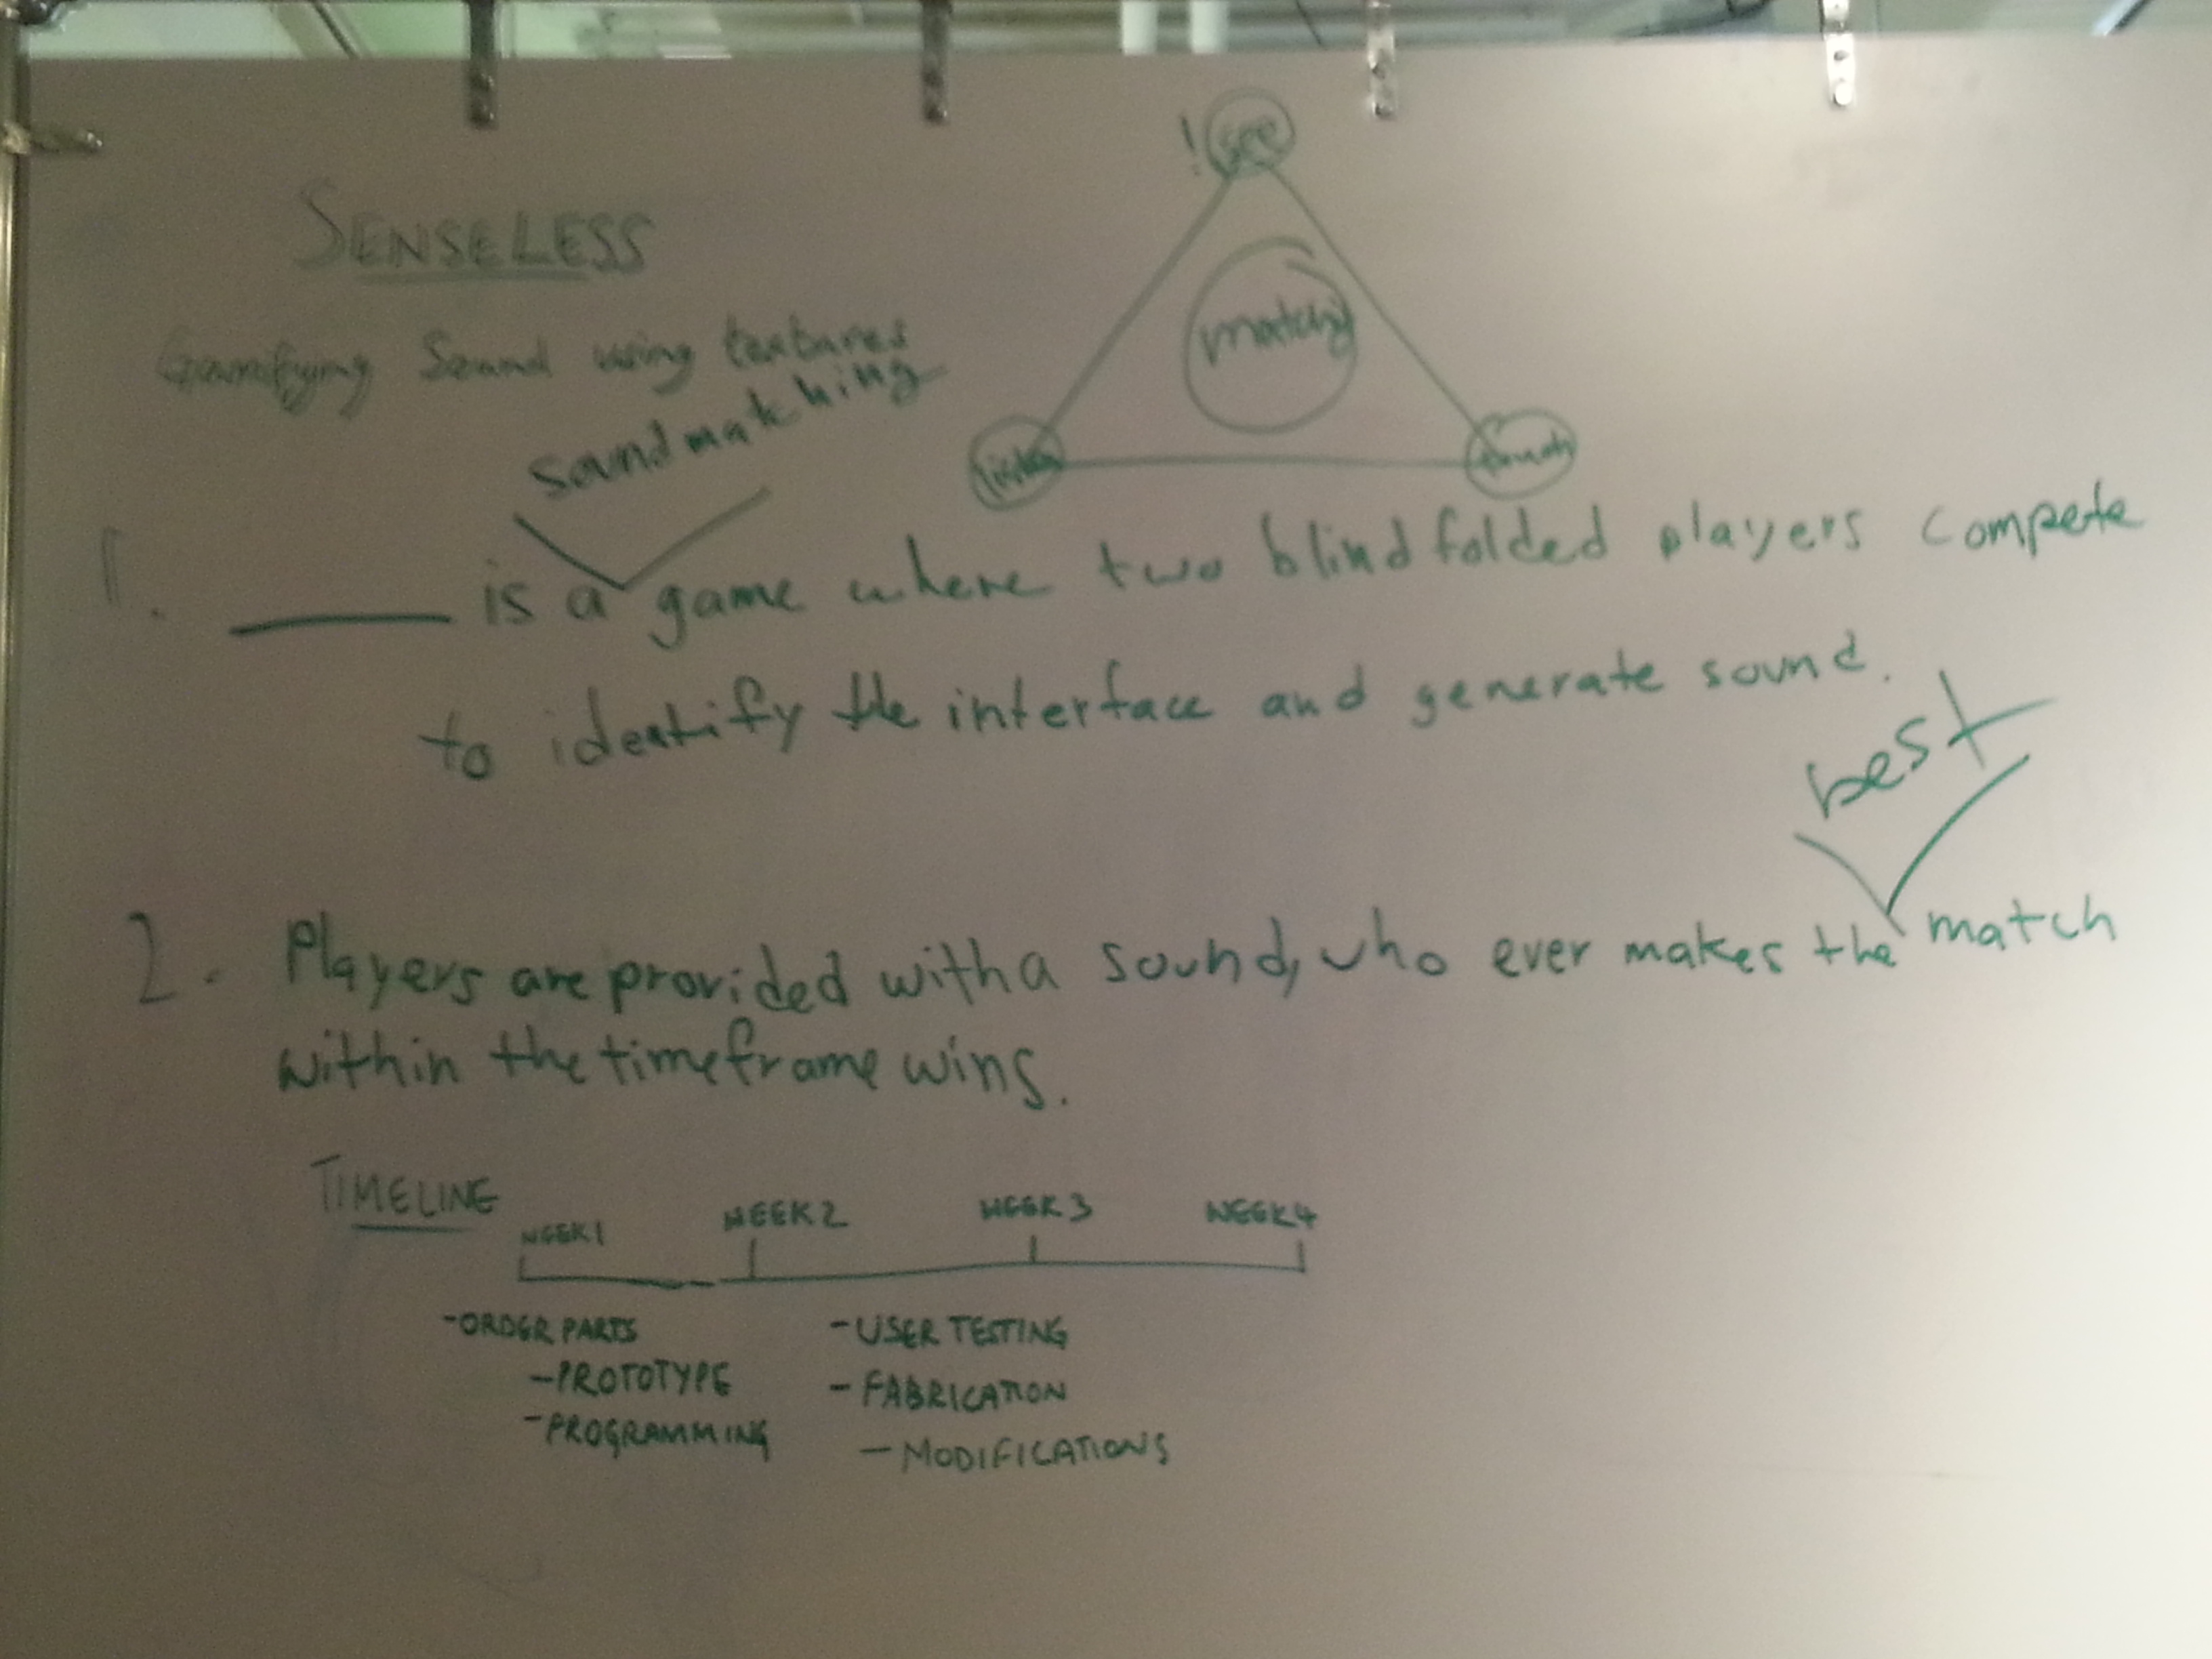 ! see
SENSELESS
Gamifying Sound using textures
matching
listen
touch
sound matching
1. ____ is a game where two blindfolded players compete
to identify the interface and generate sound.
best
2. Players are provided with a sound, who ever makes the match
within the timeframe wins.
TIMELINE
WEEK1 WEEK2 WEEK3 WEEK4
-ORDER PARTS -USER TESTING
-PROTOTYPE - FABRICATION
-PROGRAMMING - MODIFICATIONS